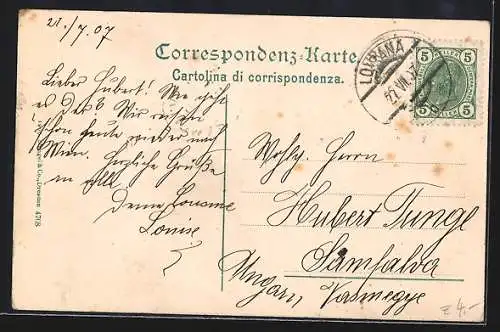 21/7 07
Correspondenz-Karte.
Cartolina di corrispondenza.
LOVRANA
22 VII 07
5 5
5 5
Lieber Hubert! Wie geht
es Dir? Wir reisen
schon heute wieder nach
Wien. Herzliche Grüße
an alle
Deine
Louise
Wohlg. Herrn
Hubert Junge
Samfalva
Ungarn, Vasmegye
& Co., Dresden 4718
4.-